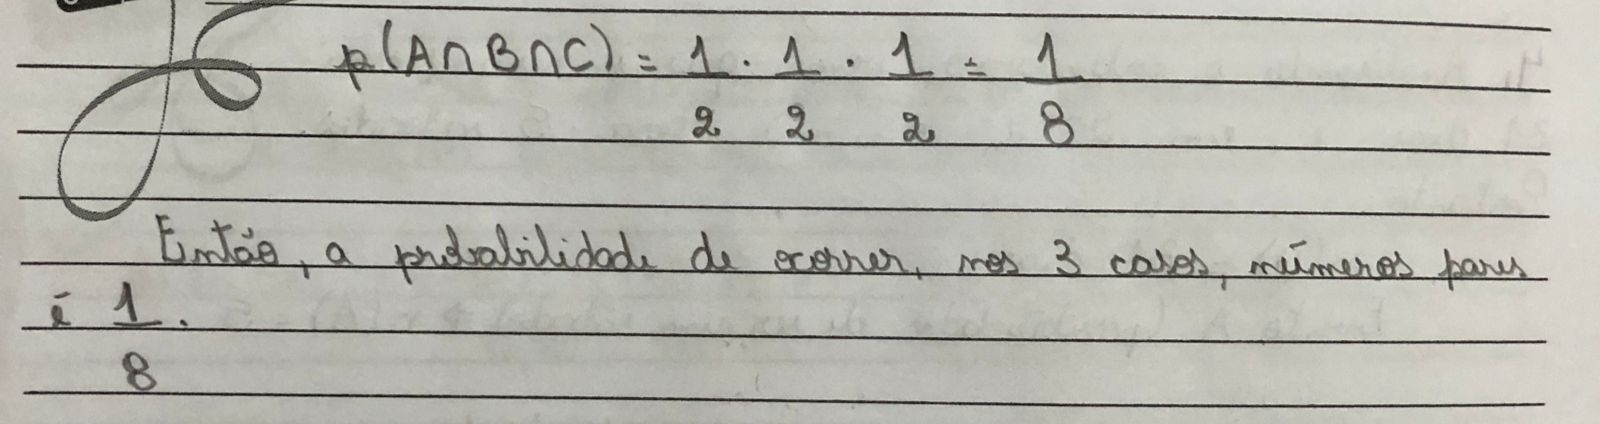 p(A∩B∩C) = 1/2 . 1/2 . 1/2 = 1/8
Então, a probabilidade de ocorrer, nos 3 casos, números pares
é 1/8.